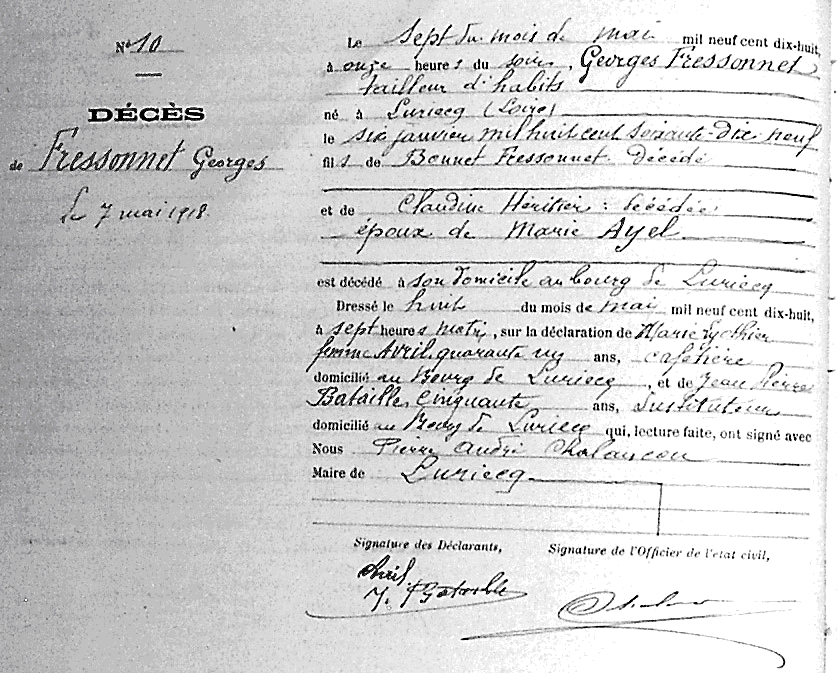 N° 10
DÉCÈS
de Fressonnet Georges
Le 7 mai 1918
Le sept du mois de mai mil neuf cent dix-huit,
à onze heures du soir, Georges Fressonnet
tailleur d'habits
né à Luriecq (Loire)
le six janvier mil huit cent soixante-dix-neuf
fils de Bonnet Fressonnet décédé
et de Claudine Héritier : décédée
époux de Marie Ayel
est décédé à son domicile au bourg de Luriecq
Dressé le huit du mois de mai mil neuf cent dix-huit,
à sept heures matin, sur la déclaration de Marie
femme Avril, quarante ans, cafetière
domicilié au Bourg de Luriecq, et de Jean Pierre
Bataille, cinquante ans, Instituteur
domicilié au Bourg de Luriecq qui, lecture faite, ont signé avec
Nous Pierre André Chalancon
Maire de Luriecq
Signature des Déclarants,
Signature de l'Officier de l'état civil,
Avril
J. P. Bataille